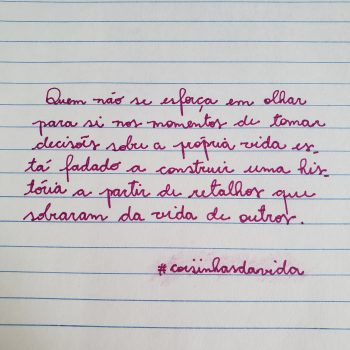 Quem não se esforça em olhar
para si nos momentos de tomar
decisões sobre a própria vida es-
tá fadado a construir uma his-
tória a partir de retalhos que
sobraram da vida de outros.
#coisinhasdavida